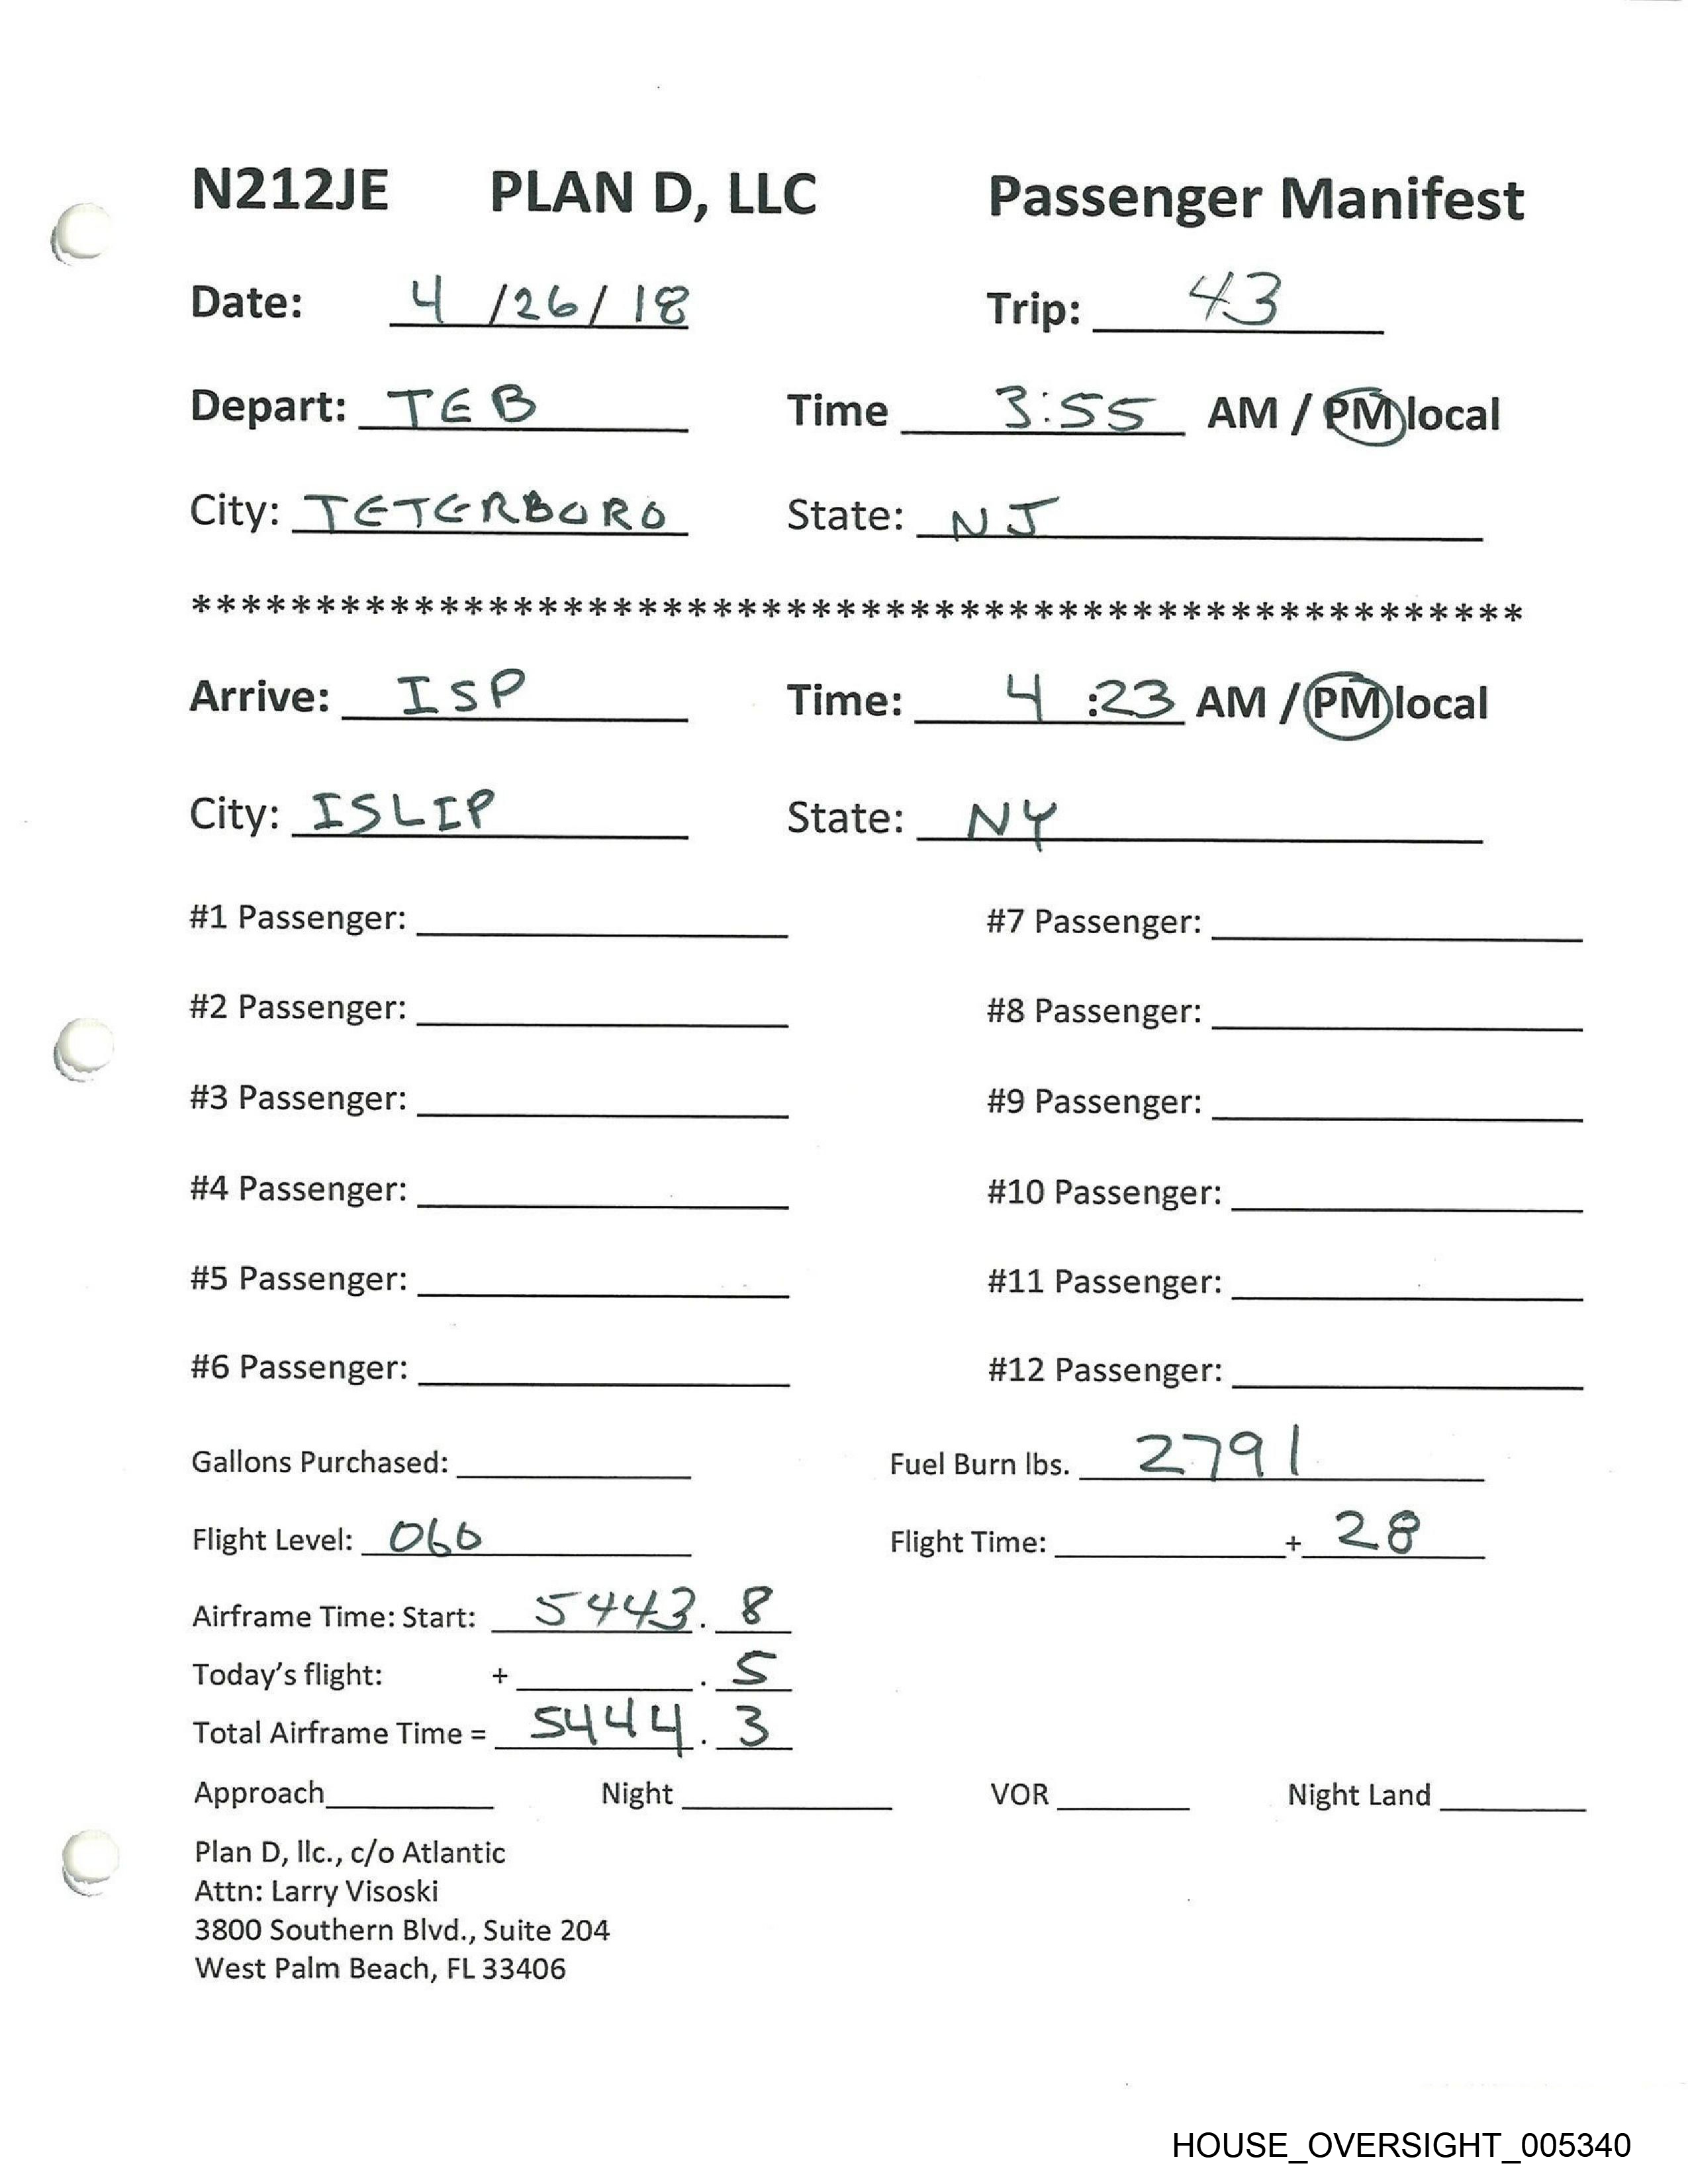 N212JE PLAN D, LLC Passenger Manifest
Date: 4 /26/ 18 Trip: 43
Depart: TEB Time 3:55 AM / PM local
City: TETERBORO State: NJ
******************************************************
Arrive: ISP Time: 4 :23 AM / PM local
City: ISLIP State: NY
#1 Passenger: #7 Passenger:
#2 Passenger: #8 Passenger:
#3 Passenger: #9 Passenger:
#4 Passenger: #10 Passenger:
#5 Passenger: #11 Passenger:
#6 Passenger: #12 Passenger:
Gallons Purchased: Fuel Burn lbs. 2791
Flight Level: 060 Flight Time: + 28
Airframe Time: Start: 5443. 8
Today's flight: + . 5
Total Airframe Time = 5444. 3
Approach Night VOR Night Land
Plan D, llc., c/o Atlantic
Attn: Larry Visoski
3800 Southern Blvd., Suite 204
West Palm Beach, FL 33406
HOUSE_OVERSIGHT_005340